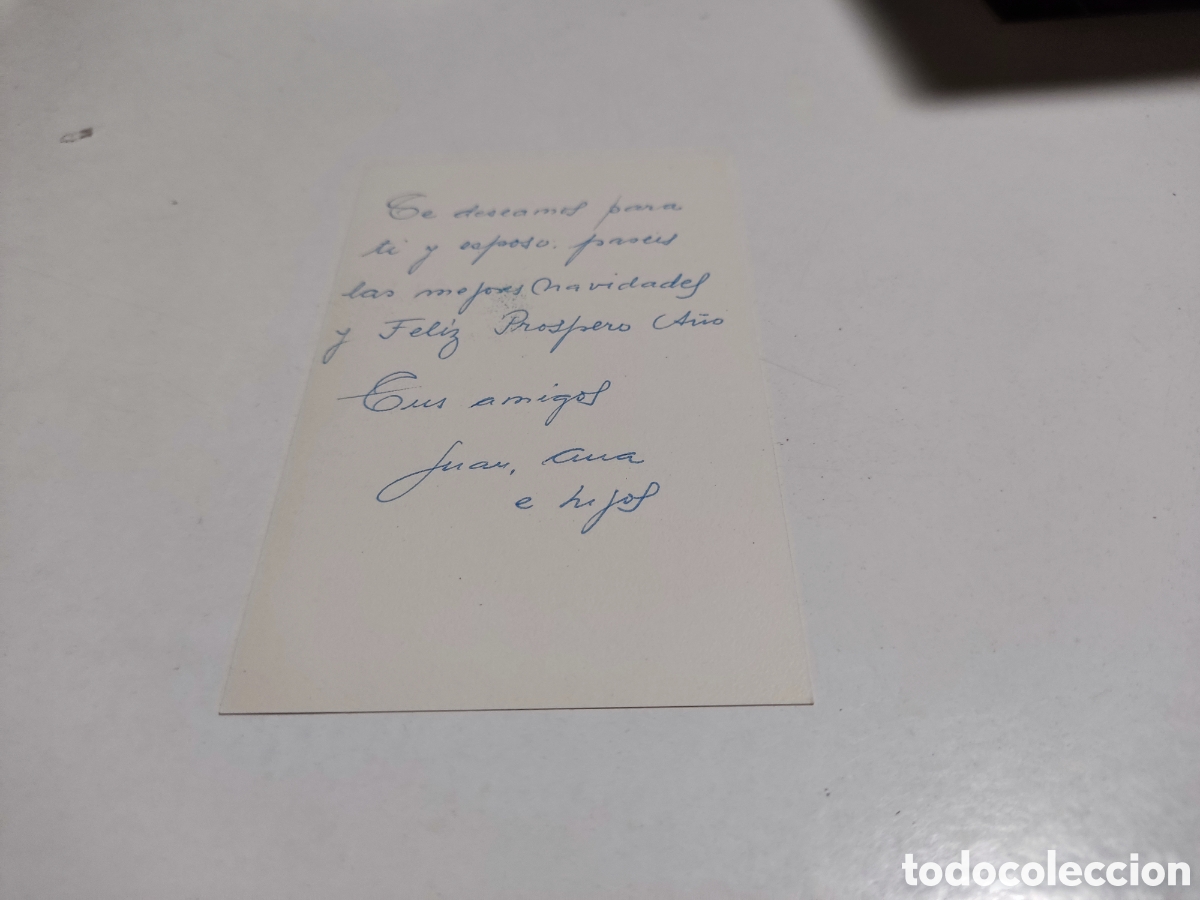 Te deseamos para
ti y esposo. paseis
las mejores Navidades
y Feliz Prospero Año
Tus amigos
Juan, Ana
e hijos
todocoleccion